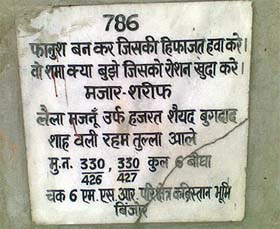 786
फानुश बन कर जिसकी हिफाजत हवा करे।
वो शमा क्या बुझे जिसको रोशन खुदा करे।
मजार-शरीफ
लैला मजनूँ उर्फ हजरत शैयद बुगदाद
शाह वली रहम तुल्ला आले
मु.न. 330 , 330 कुल 6 बीघा
426 427
चक 6 एम.एस.आर. परिक्षेत्र कब्रिस्तान भूमि
बिंजोर